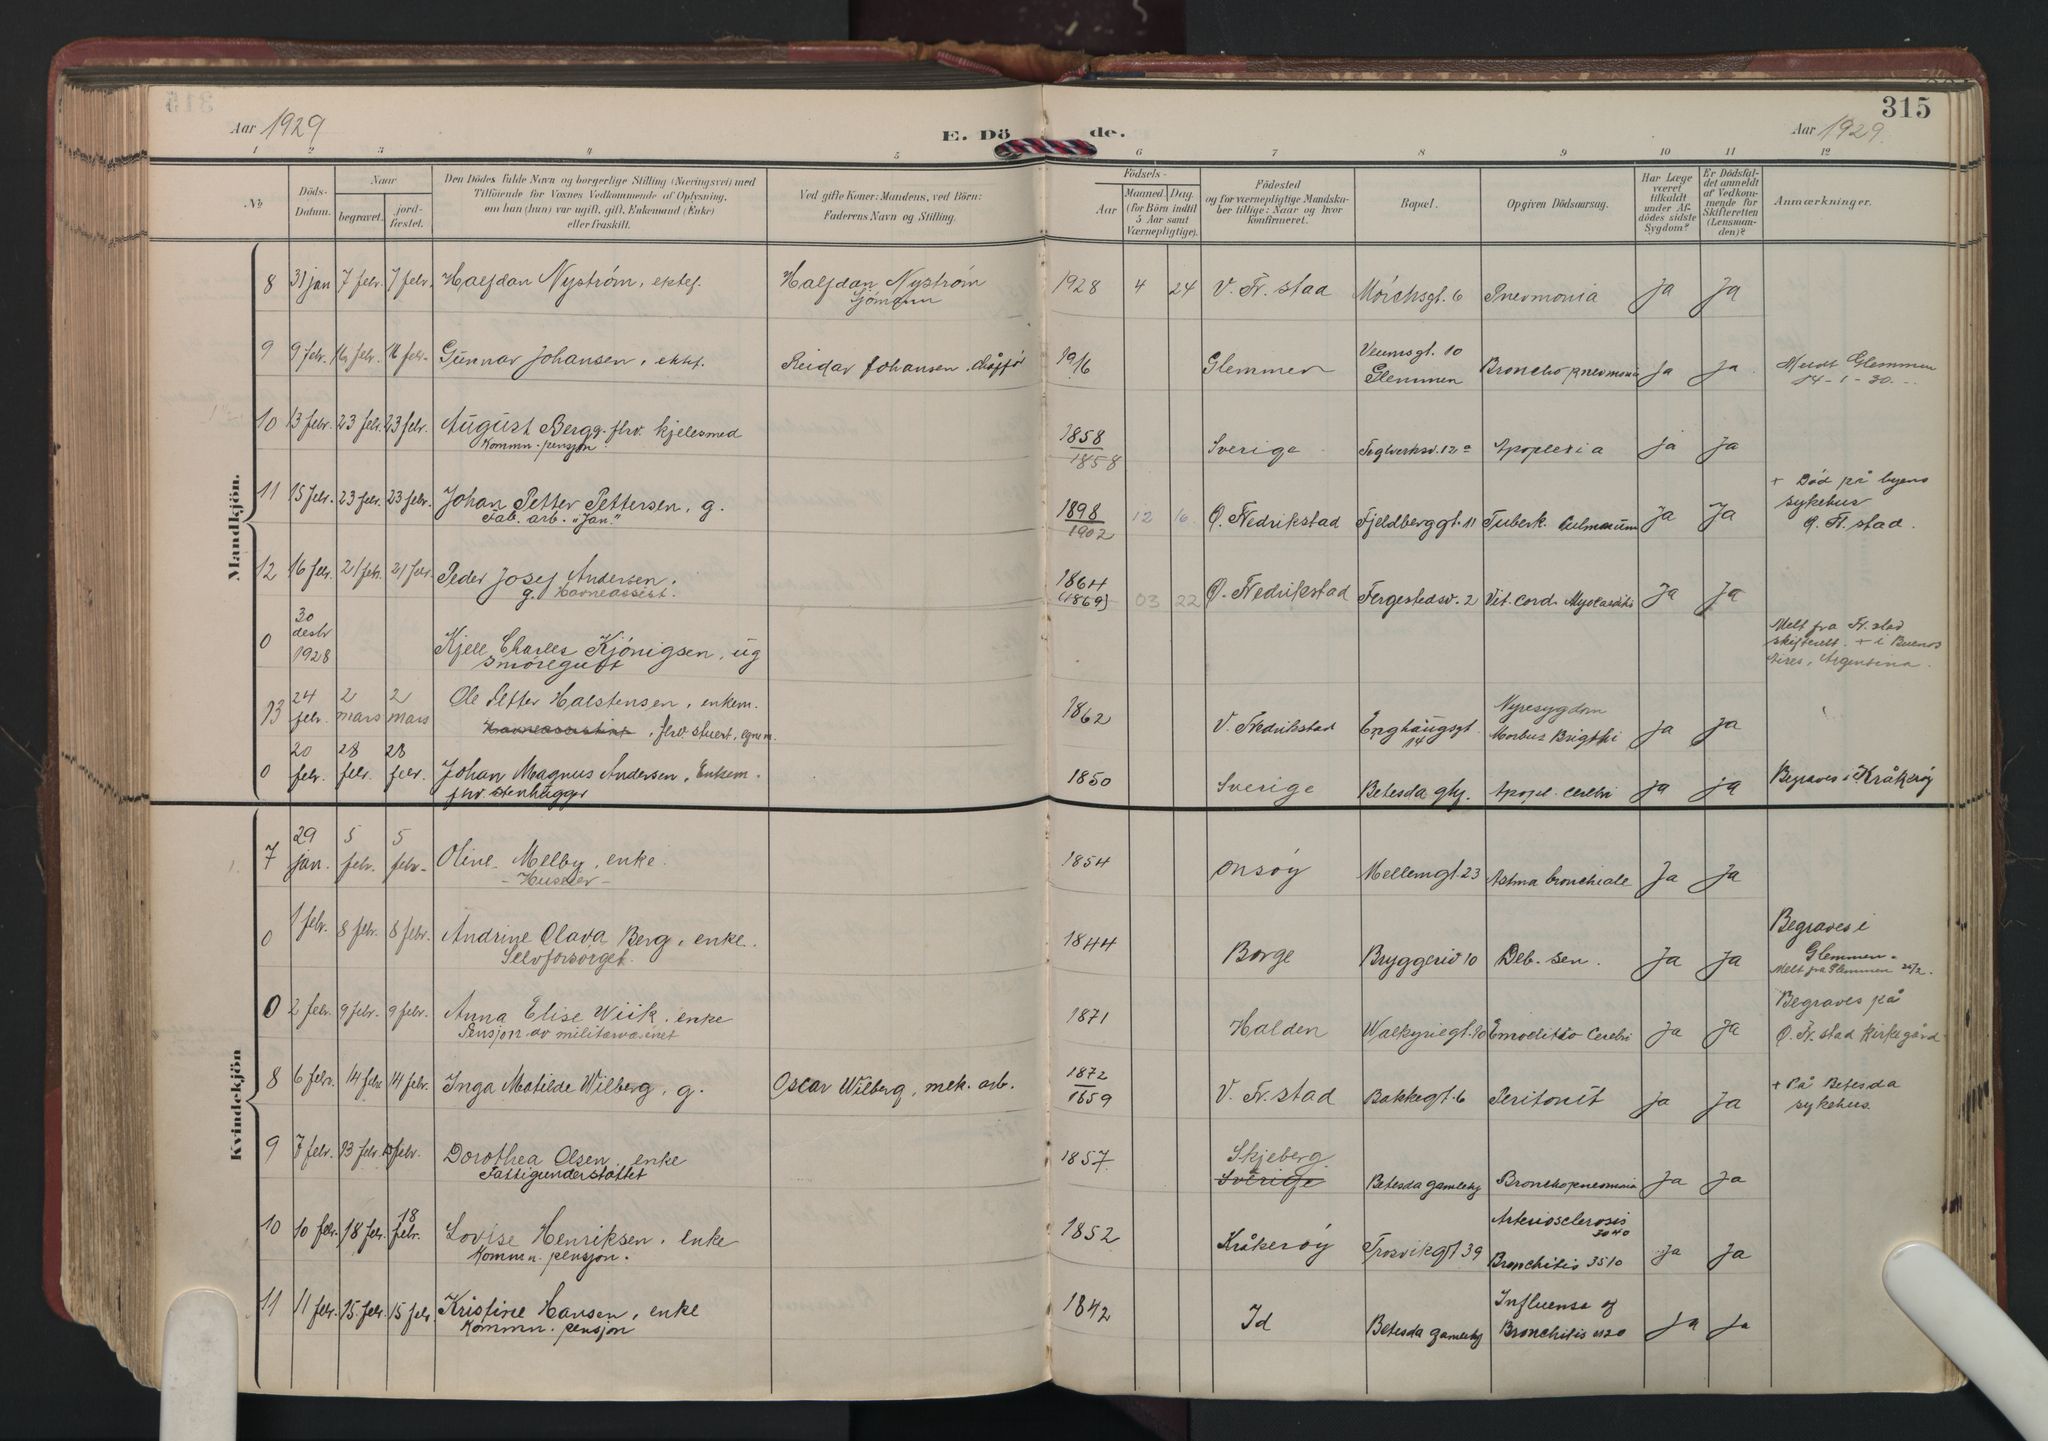 315
Aar 1929
E. Dö de.
Aar 1929.
1 2 3 4 5 6 7 8 9 10 11 12
No
Döds-Datum.
Naar
begravet.
jord-fæstet.
Den Dödes fulde Navn og borgerlige Stilling (Næringsvei) med
Tilföiende for Voxnes Vedkommende af Oplysning,
om han (hun) var ugift, gift, Enkemand (Enke)
eller fraskilt.
Ved gifte Koner: Mandens, ved Börn:
Faderens Navn og Stilling.
Födsels-
Aar
Maaned. Dag.
(for Börn indtil
5 Aar samt
Værnepligtige).
Födested
og for værnepligtige Mandska-
ber tillige: Naar og hvor
konfirmeret.
Bopæl.
Opgiven Dödsaarsag.
Har Læge
været
tilkaldt
under Af-
dödes sidste
Sygdom?
Er Dödsfal-
det anmeldt
af Vedkom-
mende for
Skifteretten
(Lensman-
den)?
Anmærkninger.
Mandkjön.
8 31 jan 7 febr. 7 febr. Halfdan Nyström, ektef. Halfdan Nyström 1928 4 24 V. Fr. stad Mörchsgt. 6 Pnevmonia ja ja
Sjömann
9 9 febr. 16 febr. 16 febr. Gunnar Johansen, ektef. Reidar Johansen, 1916 Glemmen Veumsgt. 10 Glemmen Bronchopnevmonia ja ja Meldt Glemmen
14-1-30.
10 13 febr. 23 febr. 23 febr. August Berg, fhv. kjelesmed 1858 Sverige Teglverksv. 12a Apoplexia ja ja
Kommn. pensjon. 1858
11 15 febr. 23 febr. 23 febr. Johan Petter Pettersen, g. 1898 12 16 Ø. Fredrikstad Fjeldberggt. 11 Tuberk. Pulmonum ja ja + Död på byens
Fab. arb. "Jan." 1902 sykehus
Ø. Fr. stad.
12 16 febr. 21 febr. 21 febr. Peder Josef Andersen. 1864 03 22 Ø. Fredrikstad Fergestedsv. 2 Vit. cord. Myocardits ja ja
g. Havneassist. (1869)
0 30 desbr 1928 Kjell Charles Kjönigsen, ug Melt fra Fr. stad
Smöregutt skifterett. + i Buenos
Aires, Argentina.
13 24 febr. 2 mars 2 mars Ole Petter Halstensen, enkem. 1862 V. Fredrikstad Enghaugsgt. 14 Nyresygdom ja ja
Havneassistent, fhv. stuert, Morbus Brigthi
0 20 febr. 28 febr. 28 febr. Johan Magnus Andersen, Enkem. 1850 Sverige Betesda glhj. Apopl. cerebri ja ja Begraves i Kråkeröy
fhv. stenhugger
Kvindekjön
7 29 jan. 5 febr. 5 febr. Oline Melby, enke. 1854 Onsöy Mellemgt. 23 Astma bronchiale ja ja
- Huseier -
0 1 febr. 8 febr. 8 febr. Andrine Olava Berg, enke. 1844 Borge Bryggeriv 10 Deb. sen. ja ja Begraves i
Selvforsörget. Glemmen.
Melt fra Glemmen 20/2.
0 2 febr. 9 febr. 9 febr. Anna Elise Wiik, enke 1871 Halden Walkyriegt. 10 Cerebri ja ja Begraves på
Pensjon av militærvæsenet Ø. Fr. stad kirkegård
8 6 febr. 14 febr. 14 febr. Inga Matilde Wilberg, g. Oscar Wilberg, mek. arb. 1872 V. Fr. stad Bakkegt. 6 Peritonit ja ja + På Betesda
1859 sykehus.
9 7 febr. 13 febr. 13 febr. Dorothea Olsen, enke 1857 Skjeberg. Betesda gamlehj Bronchopnevmonia ja ja
Fattigunderstöttet Sverige
10 10 febr. 18 febr. 18 febr. Lovise Henriksen, enke 1852 Kråkeröy Trosvikgt 39 Arteriosclerosis 3040 ja ja
Kommn. pensjon. Bronchitis 3510
11 11 febr. 15 febr. 15 febr. Kristine Hansen, enke 1842 Id Betesda gamlehj Influensa og ja ja
Kommn. pensjon Bronchitis 1120